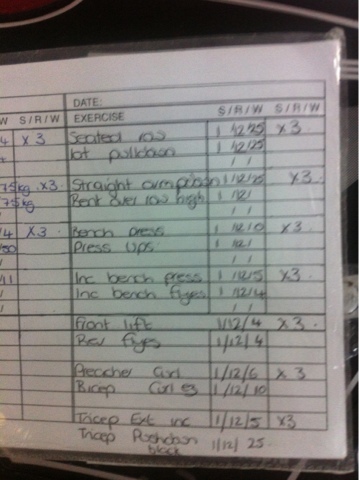 DATE:
W S/R/W EXERCISE S/R/W S/R/W
4 x3 Seated row 1 /12/25 x3
lat pulldown 1 /12/25
/ /
75kg x3 Straight arm 1/12/25 x3
75kg Bent over row high 1 /12/
/ /
4 x3 Bench press 1 /12/0 x3
50 Press Ups 1 /12/
/ /
11 Inc bench press 1 /12/5 x3
Inc bench flyes 1 /12/4
/ /
Front lift 1/12/4 x3
Rev flyes 1/12/4
Preacher Curl 1/12/6 x3
Bicep Curl 1/12/10
Tricep Ext inc 1/12/5 x3
Tricep Pushdown 1/12/25
block